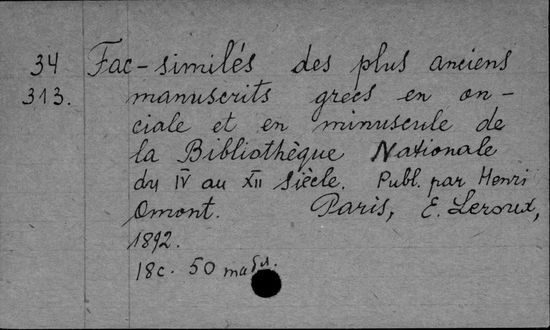 34 Fac-similés des plus anciens
313. manuscrits grecs en on-
ciale et en minuscule de
la Bibliothèque Nationale
du IV au XII siècle. Publ. par Henri
Omont. Paris, E. Leroux,
1892.
18c. 50